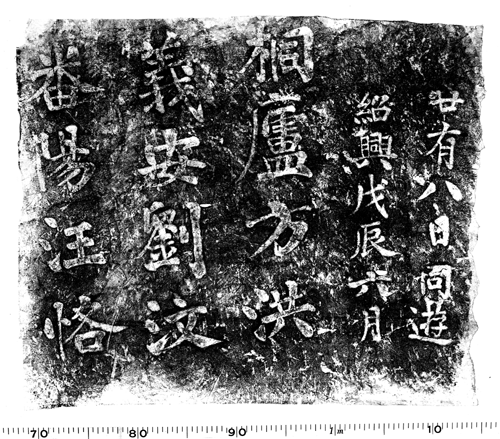 番陽汪恪
義安劉汶
桐廬方洪
紹興戊辰六月
廿有八日同遊
70 80 90 1m 10